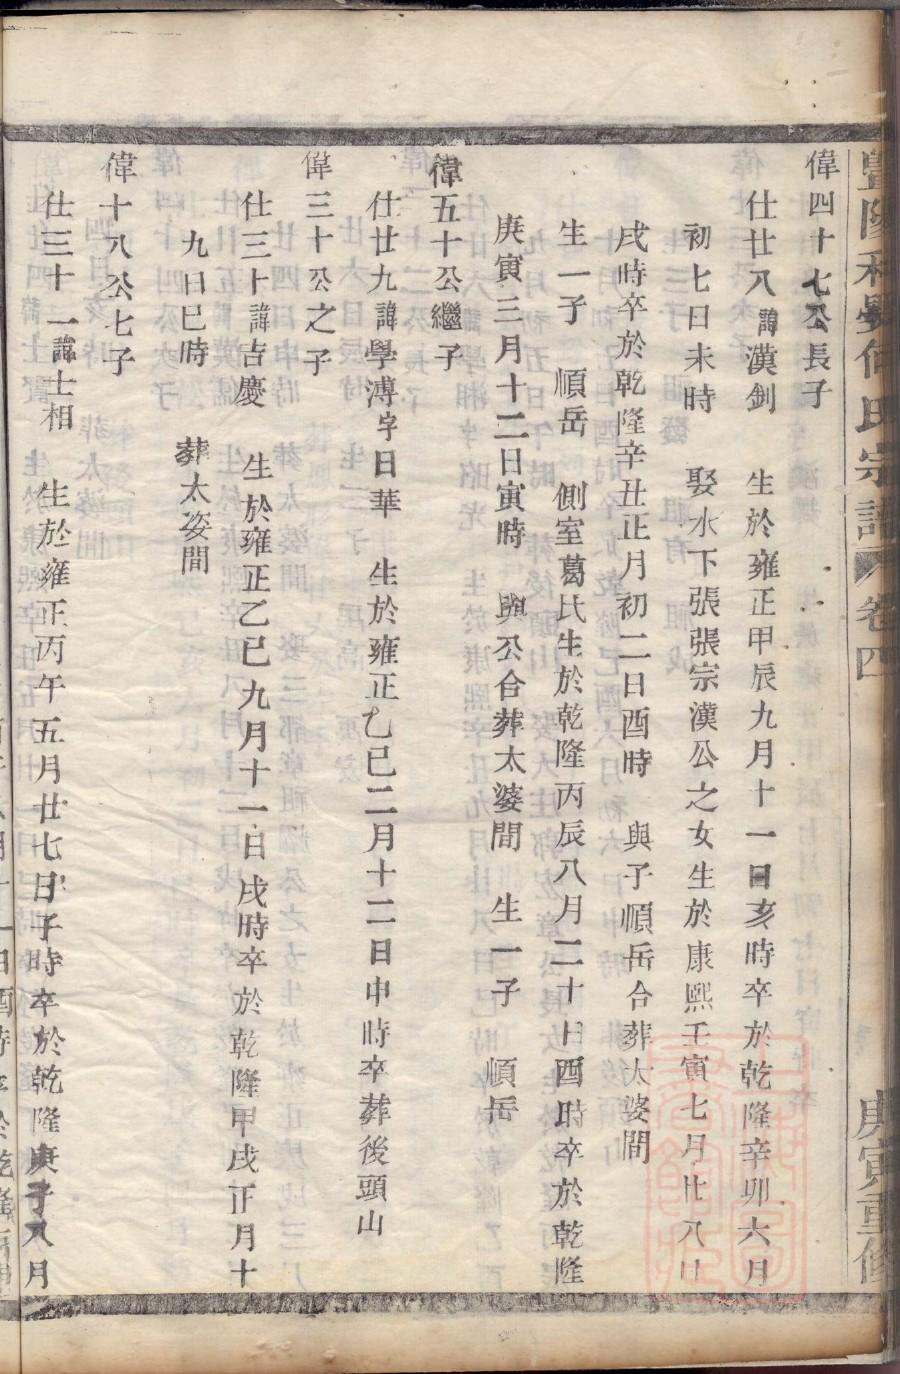 暨陽和疊何氏宗譜 卷四 庚寅重修
偉四十七公長子
仕廿八諱漢釗 生於雍正甲辰九月十一日亥時卒於乾隆辛卯六月
初七日未時 娶水下張張宗漢公之女生於康熙壬寅七月廿八日
戌時卒於乾隆辛丑正月初二日酉時 與子順岳合葬太婆間
生一子 順岳 側室葛氏生於乾隆丙辰八月二十 日酉時卒於乾隆
庚寅三月十二日寅時 與公合葬太婆間 生一子 順岳
偉五十公繼子
仕廿九諱學溥字日華 生於雍正乙巳二月十二日申時卒葬後頭山
偉三十公之子
仕三十諱吉慶 生於雍正乙巳九月十一日戌時卒於乾隆甲戌正月十
九日巳時 葬太婆間
偉十八公七子
仕三十一諱士相 生於雍正丙午五月廿七日子時卒於乾隆庚子八月